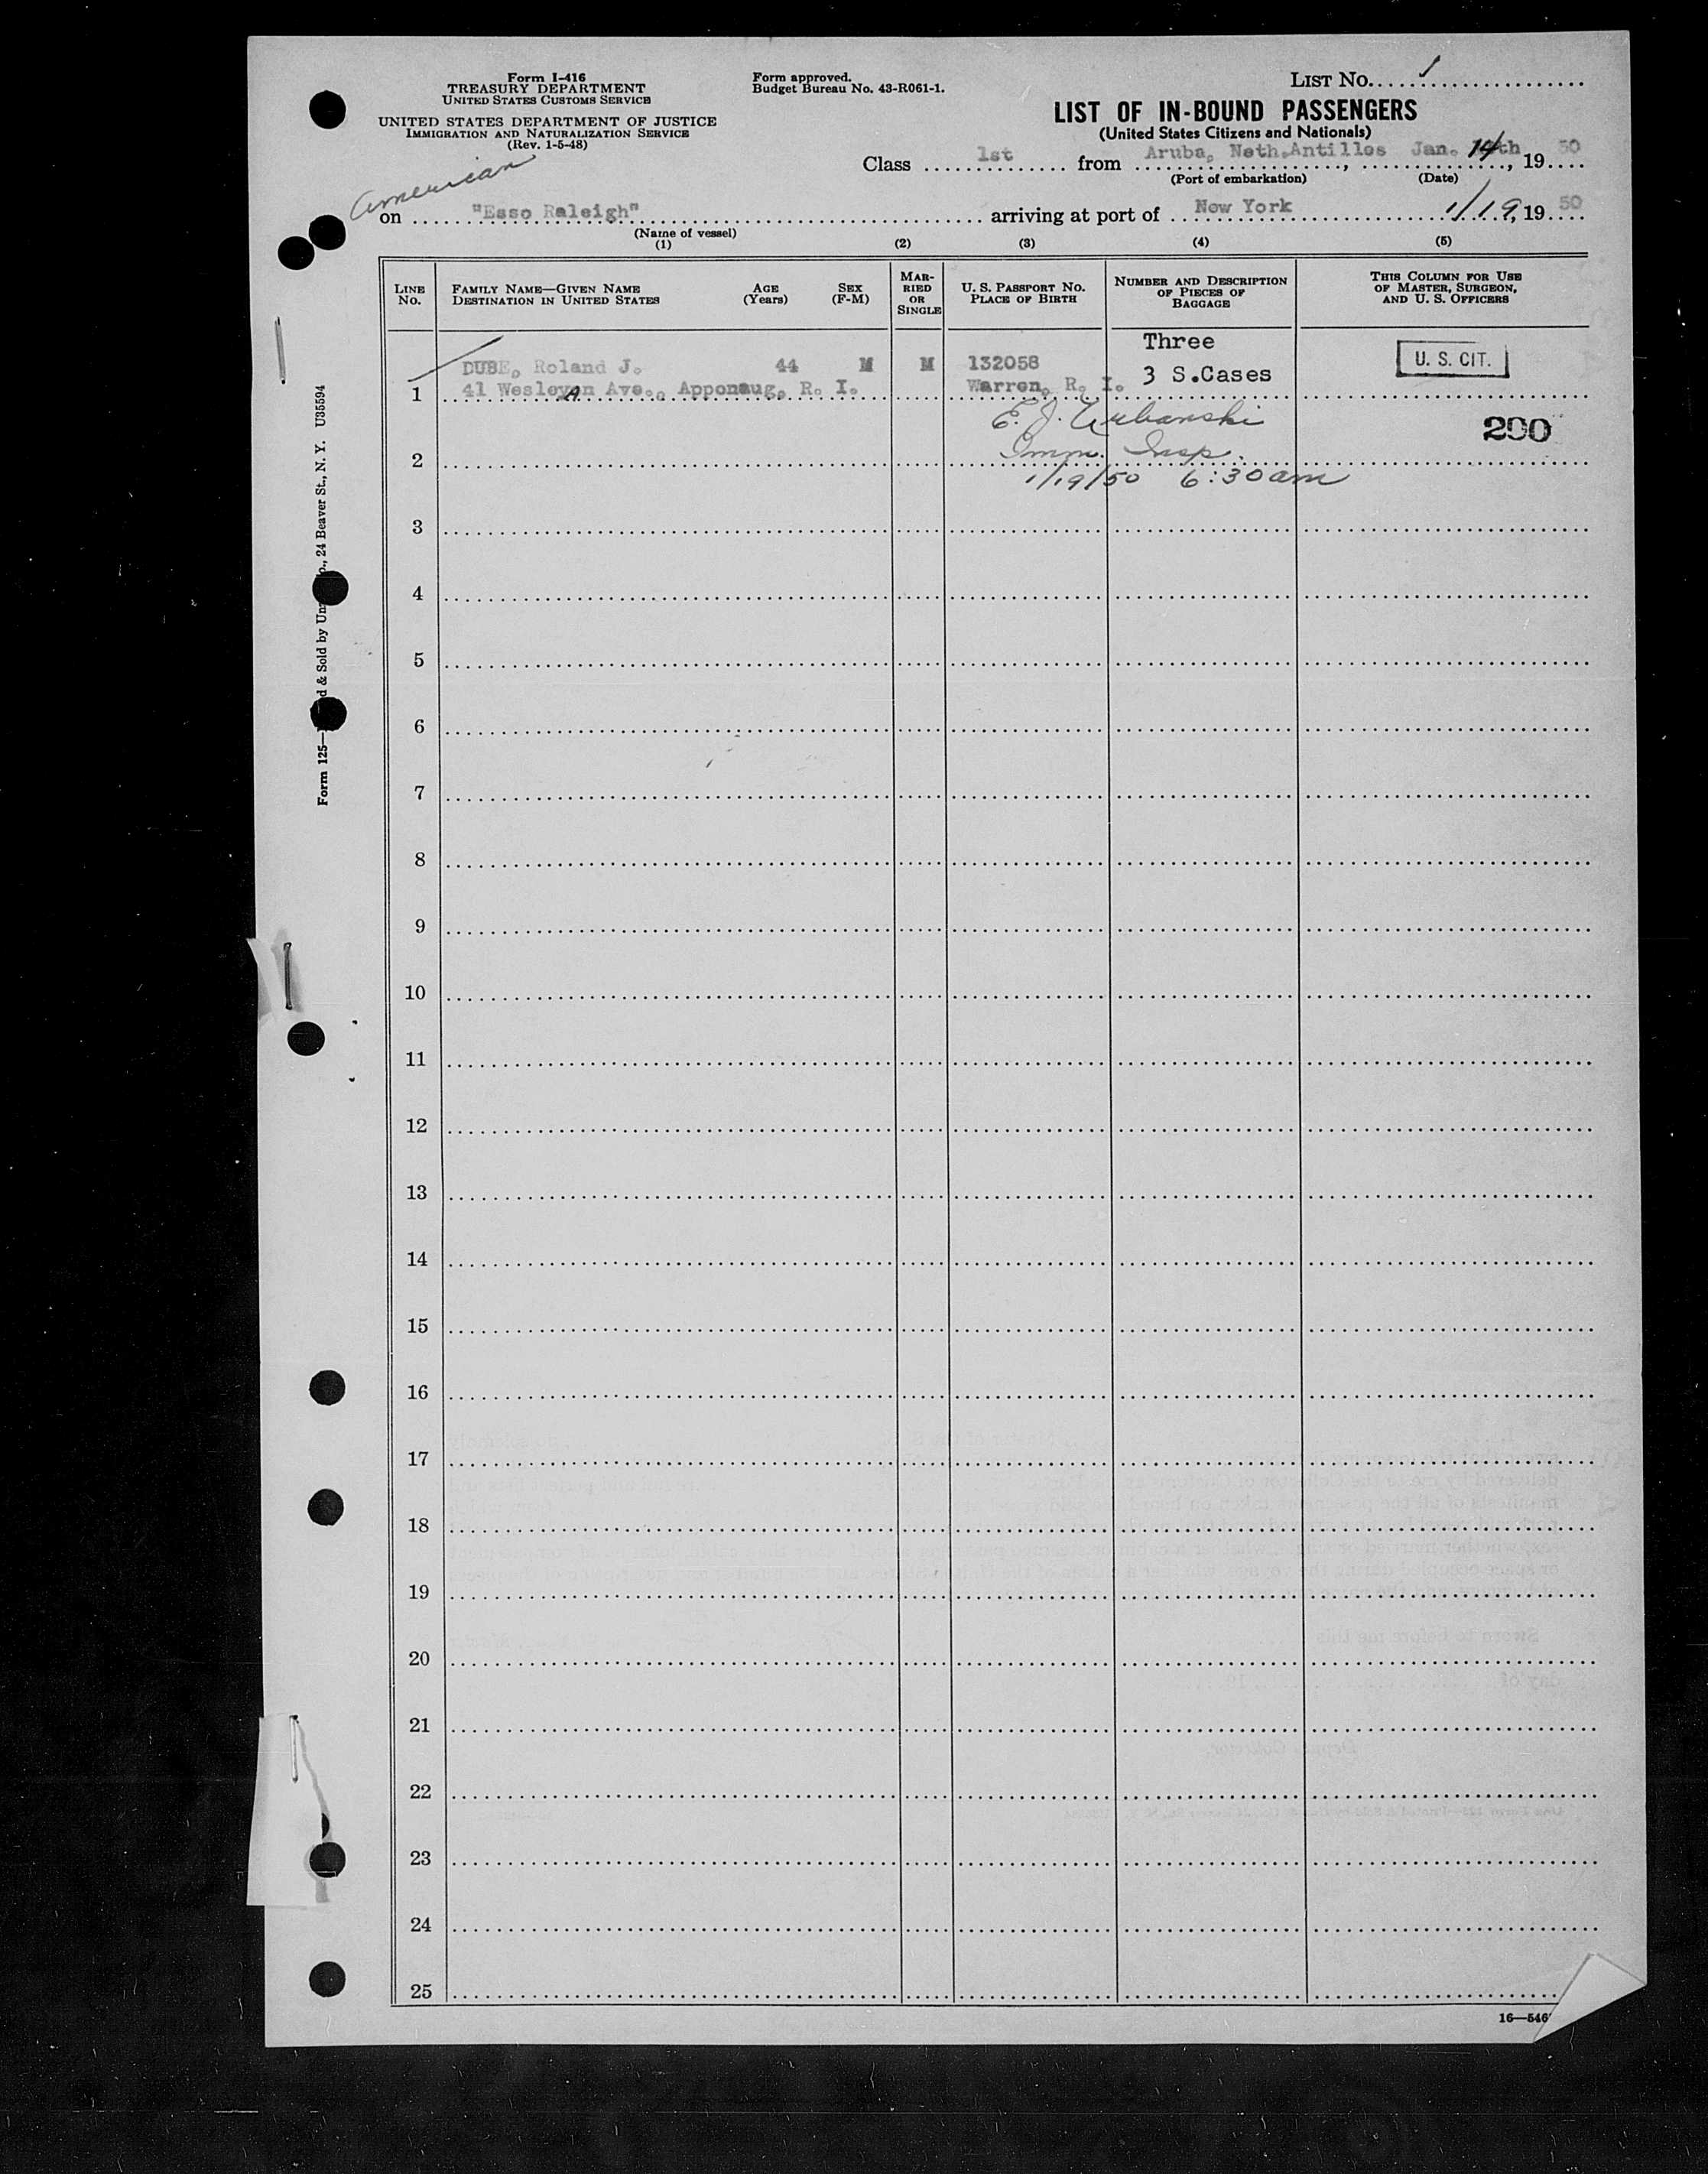 Form I-416
TREASURY DEPARTMENT
UNITED STATES CUSTOMS SERVICE
UNITED STATES DEPARTMENT OF JUSTICE
IMMIGRATION AND NATURALIZATION SERVICE
(Rev. 1-5-48)
Form approved.
Budget Bureau No. 43-R061-1.
LIST NO. 1
LIST OF IN-BOUND PASSENGERS
(United States Citizens and Nationals)
Class 1st from Aruba, Neth.Antilles Jan. 14th, 1950
(Port of embarkation) (Date)
American
on "Esso Raleigh" arriving at port of New York 1/19, 1950
(Name of vessel)
(1) (2) (3) (4) (5)
LINE NO.
FAMILY NAME—GIVEN NAME
DESTINATION IN UNITED STATES
AGE (Years)
SEX (F-M)
MARRIED OR SINGLE
U. S. PASSPORT NO.
PLACE OF BIRTH
NUMBER AND DESCRIPTION OF PIECES OF BAGGAGE
THIS COLUMN FOR USE OF MASTER, SURGEON, AND U. S. OFFICERS
Three
DUBE, Roland J. 44 M M 132058 3 S.Cases U. S. CIT.
1 41 Wesleyan Ave., Apponaug, R. I. Warren, R. I.
E. J. Urbanski 290
2 Imm. Insp.
1/19/50 6:30am
3
4
5
6
7
8
9
10
11
12
13
14
15
16
17
18
19
20
21
22
23
24
25
Form 125— d & Sold by , 24 Beaver St., N. Y. U35594
16—546